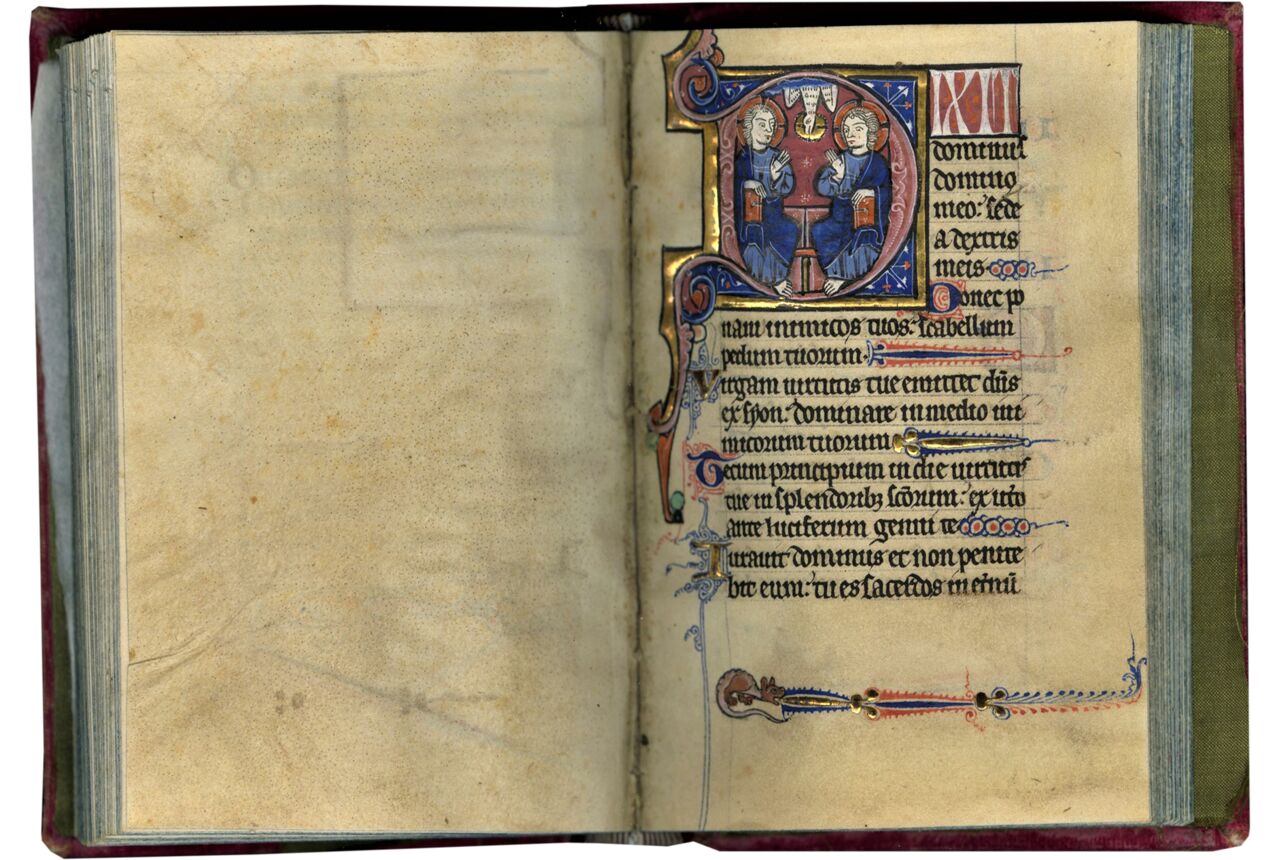 DIXIT
dominus
domino
meo: sede
a dextris
meis
Donec po
nam inimicos tuos: scabellum
pedum tuorum.
Virgam uirtutis tue emittet dn̄s
ex syon: dominare in medio ini
micorum tuorum
Tecum principium in die uirtutis
tue in splendoribꝫ sc̄orum: ex ut̄o
ante luciferum genui te
Iurauit dominus et non penite
bit eum: tu es sacerdos in et̄nū